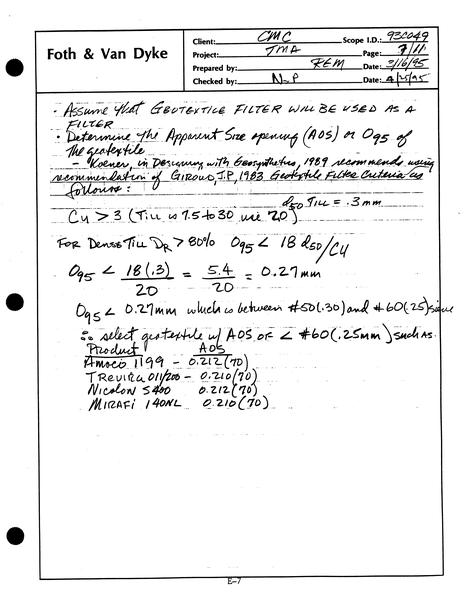 Foth & Van Dyke
Client: CMC Scope I.D.: 93C049
Project: TMA Page: 7/11
Prepared by: REM Date: 2/16/95
Checked by: NLP Date: 4/25/95
- Assume that GEOTEXTILE FILTER WILL BE USED AS A
FILTER
- Determine the Apparent Size opening (AOS) or O95 of
the geotextile
- Koerner, in Designing with Geosynthetics, 1989 recommends using
recommendation of GIROUD, J.P, 1983 Geotextile Filter Criteria as
follows:
d50 TILL = .3 mm
Cu > 3 (TILL is 7.5 to 30 use 20)
FOR DENSE TILL DR > 80% O95 < 18 d50/Cu
O95 < 18(.3)/20 = 5.4/20 = 0.27 mm
O95 < 0.27mm which is between #50(.30) and #60(.25) sieve
∴ select geotextile w/ AOS OF < #60(.25mm) such as.
Product AOS
Amoco 1199 - 0.212 (70)
TREVIRA 011/200 - 0.210 (70)
NICOLON S400 0.212 (70)
MIRAFI 140NL 0.210 (70)
E-7